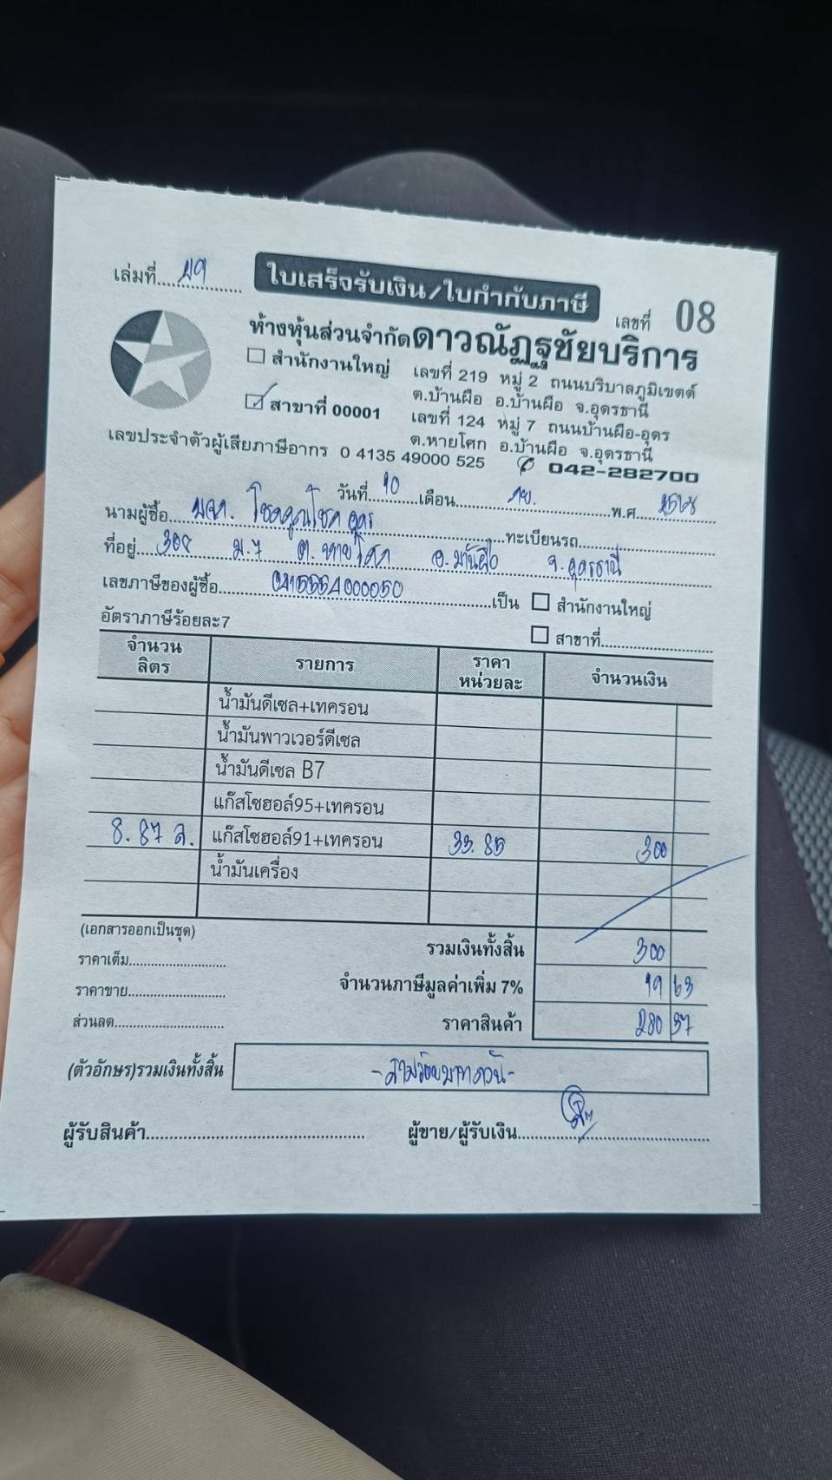 เล่มที่
ใบเสร็จรับเงิน/ใบกำกับภาษี
เลขที่ 08
ห้างหุ้นส่วนจำกัดดาวณัฏฐชัยบริการ
สำนักงานใหญ่ เลขที่ 219 หมู่ 2 ถนนบริบาลภูมิเขตต์
ต.บ้านผือ อ.บ้านผือ จ.อุดรธานี
สาขาที่ 00001 เลขที่ 124 หมู่ 7 ถนนบ้านผือ-อุดร
ต.หายโศก อ.บ้านผือ จ.อุดรธานี
เลขประจำตัวผู้เสียภาษีอากร 0 4135 49000 525 042-282700
วันที่ 10 เดือน กย. พ.ศ. 2568
นามผู้ซื้อ โชคคูณโชค อุดร ทะเบียนรถ
ที่อยู่ 308 ม.7 ต. หายโศก อ.บ้านผือ จ.อุดรธานี
เลขภาษีของผู้ซื้อ 0415554000050 เป็น สำนักงานใหญ่
อัตราภาษีร้อยละ7 สาขาที่
จำนวนลิตร รายการ ราคาหน่วยละ จำนวนเงิน
น้ำมันดีเซล+เทครอน
น้ำมันพาวเวอร์ดีเซล
น้ำมันดีเซล B7
แก๊สโซฮอล์95+เทครอน
8.87 ล. แก๊สโซฮอล์91+เทครอน 33.85 300
น้ำมันเครื่อง
(เอกสารออกเป็นชุด) รวมเงินทั้งสิ้น 300
ราคาเต็ม
ราคาขาย จำนวนภาษีมูลค่าเพิ่ม 7% 19 63
ส่วนลด ราคาสินค้า 280 37
(ตัวอักษร)รวมเงินทั้งสิ้น -สามร้อยบาทถ้วน-
ผู้รับสินค้า ผู้ขาย/ผู้รับเงิน